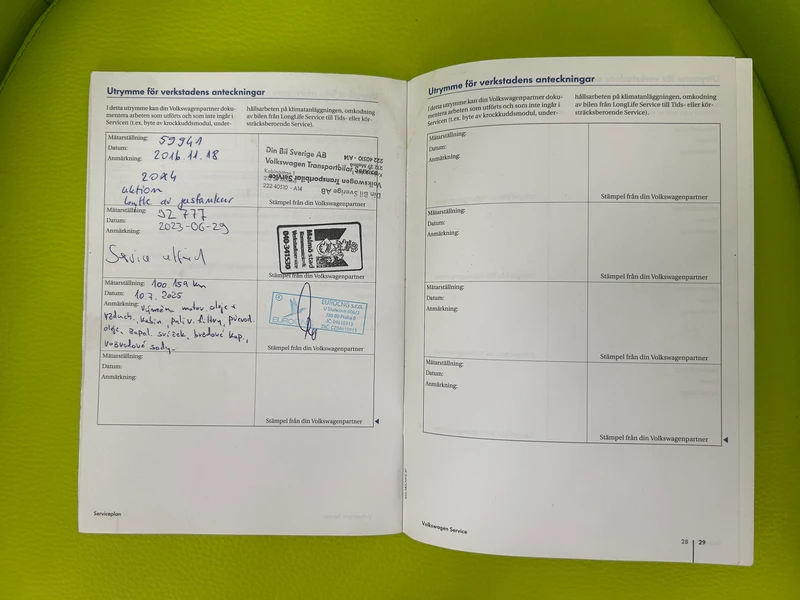 Utrymme för verkstadens anteckningar
I detta utrymme kan din Volkswagenpartner doku-
mentera arbeten som utförts och som inte ingår i
Servicen (t.ex. byte av krockkuddsmodul, under-
hållsarbeten på klimatanläggningen, omkodning
av bilen från LongLife Service till Tids- eller kör-
sträcksberoende Service).
Mätarställning: 59941
Datum: 2016.11.18
Anmärkning:
20A4
aktion
byte av
Din Bil Sverige AB
Volkswagen Transportbilar
222 40510 - A14
Stämpel från din Volkswagenpartner
Mätarställning: 92 777
Datum: 2023-06-29
Anmärkning:
Service utförd
Malmö stad
040-341530
Stämpel från din Volkswagenpartner
Mätarställning: 100.159 km
Datum: 10.7.2025
Anmärkning: Výměna motor. oleje +
vzduch., kabin., paliv. filtru, převod.
oleje, zapal. svíček, brzdové kap.,
EUROCNG s.r.o.
Stämpel från din Volkswagenpartner
Mätarställning:
Datum:
Anmärkning:
Stämpel från din Volkswagenpartner
Serviceplan
Utrymme för verkstadens anteckningar
I detta utrymme kan din Volkswagenpartner doku-
mentera arbeten som utförts och som inte ingår i
Servicen (t.ex. byte av krockkuddsmodul, under-
hållsarbeten på klimatanläggningen, omkodning
av bilen från LongLife Service till Tids- eller kör-
sträcksberoende Service).
Mätarställning:
Datum:
Anmärkning:
Stämpel från din Volkswagenpartner
Mätarställning:
Datum:
Anmärkning:
Stämpel från din Volkswagenpartner
Mätarställning:
Datum:
Anmärkning:
Stämpel från din Volkswagenpartner
Mätarställning:
Datum:
Anmärkning:
Stämpel från din Volkswagenpartner
Volkswagen Service
28 29